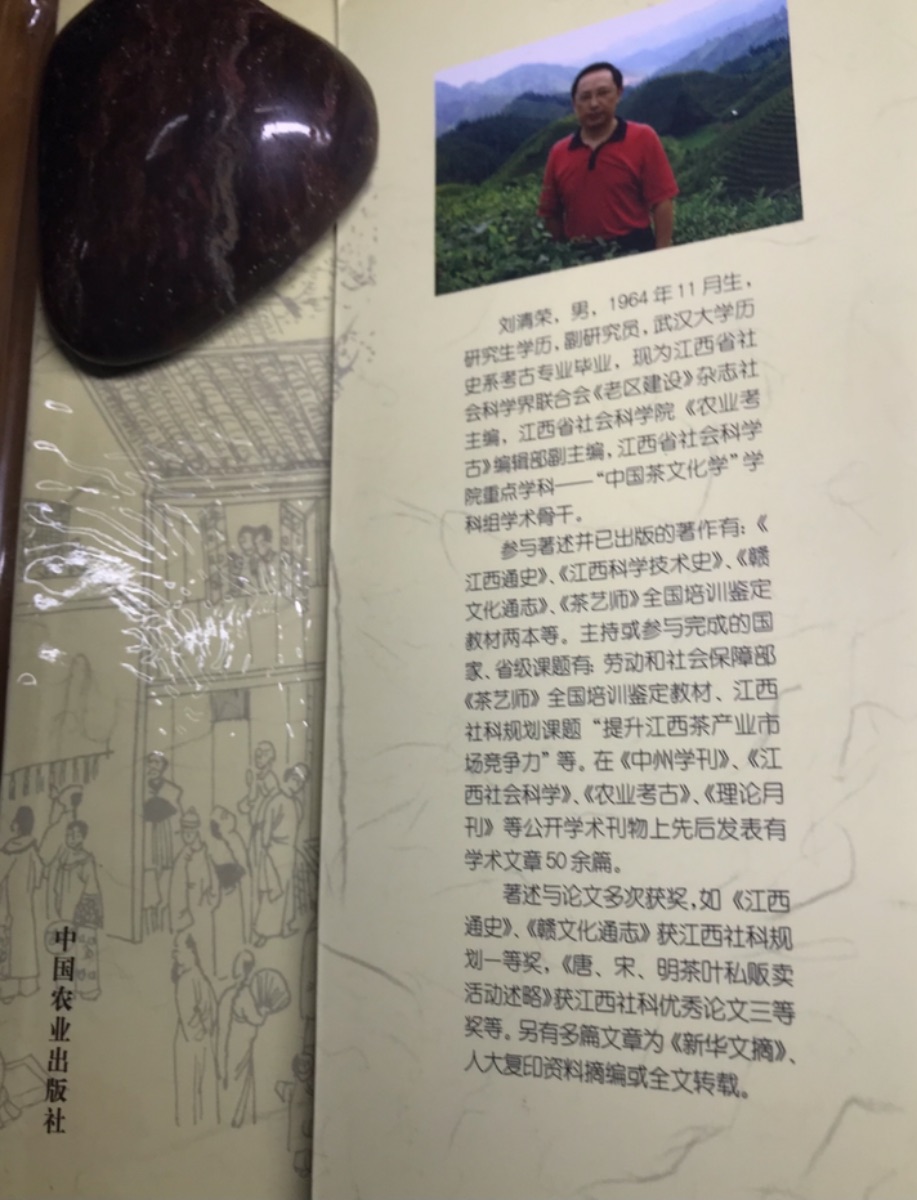 刘清荣，男，1964年11月生，
研究生学历，副研究员，武汉大学历
史系考古专业毕业，现为江西省社
会科学界联合会《老区建设》杂志社
主编，江西省社会科学院《农业考
古》编辑部副主编，江西省社会科学
院重点学科——“中国茶文化学”学
科组学术骨干。
参与著述并已出版的著作有：《
江西通史》、《江西科学技术史》、《赣
文化通志》、《茶艺师》全国培训鉴定
教材两本等。主持或参与完成的国
家、省级课题有：劳动和社会保障部
《茶艺师》全国培训鉴定教材、江西
社科规划课题“提升江西茶产业市
场竞争力”等。在《中州学刊》、《江
西社会科学》、《农业考古》、《理论月
刊》等公开学术刊物上先后发表有
学术文章50余篇。
著述与论文多次获奖，如《江西
通史》、《赣文化通志》获江西社科规
划一等奖，《唐、宋、明茶叶私贩卖
活动述略》获江西社科优秀论文三等
奖等。另有多篇文章为《新华文摘》、
人大复印资料摘编或全文转载。
中国农业出版社